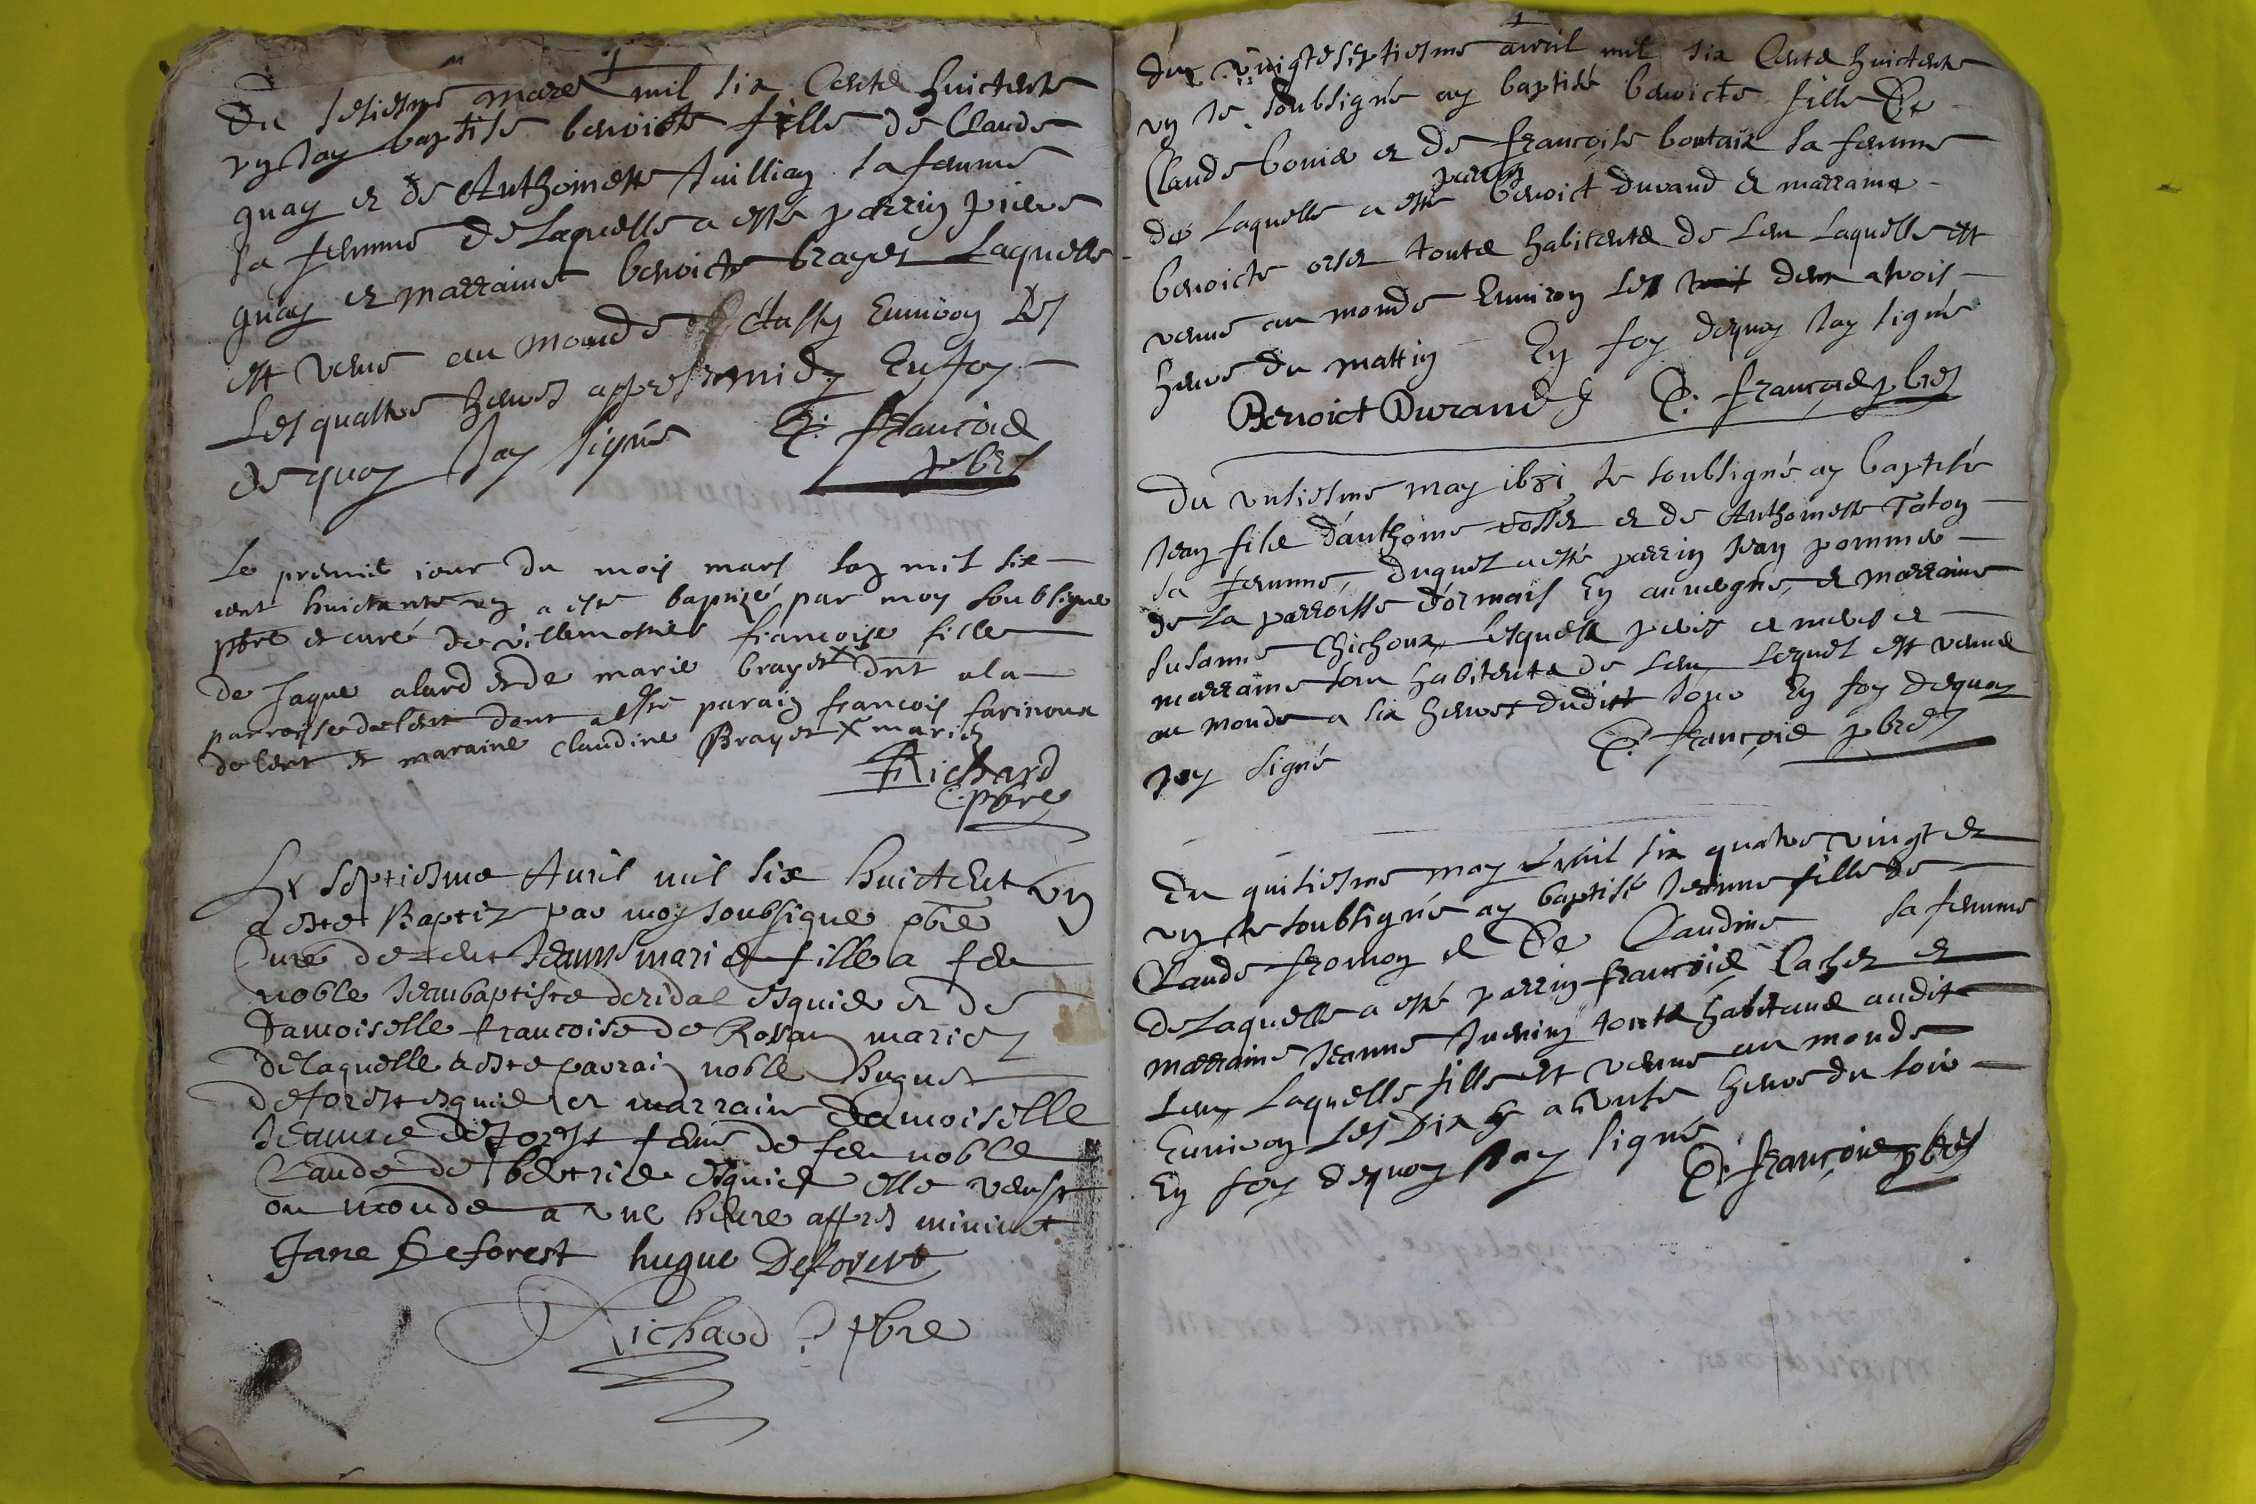 Du sesiesme mars mil six Cents huictente
un Jay baptise benoiste fille de Claude
quay et de Anthoinette Juillian sa femme
sa femme de Laquelle a esté parrin piere
quay et marraine benoicte brayet Laquelle
est venue au monde Environ Les
Les quattre heures appres midy En foy
de quoy Jay signé C: françois
pbre
Le premie iour du mois mars lan mil six
cent huictante un a este baptizé par moy soubsigne
pbre et curé de villemotier françoise fille
de Jaque alard et de marie brayet X de la
parroisse de lent dont a esté parain francois farinoux
de lent et maraine Claudine Brayet X mariez
Richard
pbre
Le septiesme Avril mil six huictent un
a este Baptiz par moy soubsigne pbre
Curé de lent Jeanne marie fille a feu
noble Jean baptiste deridal esquier et de
Damoiselle francoise de Rossan mariez
de laquelle a este parrain noble Hugues
deforest esquier et marraine Damoiselle
Jeanne deforest feme de feu noble
Claude de esquier elle venst
au monde a une heure appres minuict
Jane Deforest hugue Deforest
Richard pbre
Du vingtseptiesme avril mil six Cents huictente
un Je soubsigné ay baptisé benoicte fille De
Claude bonie et de françoise bontaix sa femme
de Laquelle a esté parrin benoict durand et marraine
benoicte orset touts habitents de Lent Laquelle est
venue au monde Environ Les deux a trois
heures du mattin En foy dequoy Jay signé
Benoict Durand C. françois pbre
Du unsiesme may 1681 Je soubsigné ay baptisé
Jean fils d'anthoine et de Anthoinette Taton
sa femme, duquel a esté parrin Jean pommie
de La parroisse d'ormais En auvergne, et marraine
susanne Chichoux Lesquels peres et meres et
marraine sont habitents de Lent Lequel est venue
au monde a six heures dudict Jour En foy dequoy
Jay signé C. françois pbre
Du quisiesme may mil six quatre vingt et
un Je soubsigné ay baptisé Jeanne fille de
Claude fromon et De Claudine sa femme
de Laquelle a esté parrin françois Cachet et
marraine Jeanne Juenin touts habitans audit
Lent Laquelle fille est venue au monde
Environ Les Dix a unse heures du soir
En foy dequoy Jay signé
C. françois pbre